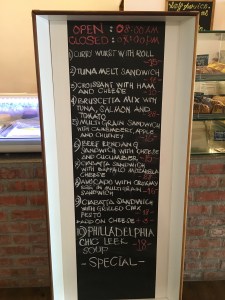 OPEN : 08:00 AM
CLOSED : 08:30 PM
1) CURRY WURST WITH ROLL
2) TUNA MELT SANDWICH
3) CROISSANT WITH HAM
AND CHEESE
4) BRUSCETTA MIX WITH
TUNA, SALMON AND
TOMATO
5) MULTI GRAIN SANDWICH
WITH CAMEMBERT, APPLE
AND CHUTNEY
6) BEEF RENDANG
SANDWICH WITH CHEESE
AND CUCUMBER
7) CIABATTA SANDWICH
WITH BUFFALO MOZZARELLA
CHEESE
8) AVOCADO WITH CREAMY
EGG IN MULTI GRAIN
SANDWICH
9) CIABATTA SANDWICH
WITH GRILLED
PESTO
ON CHEESE
10) PHILLADELPHIA
CHIC LEEK
SOUP -18-
-SPECIAL-